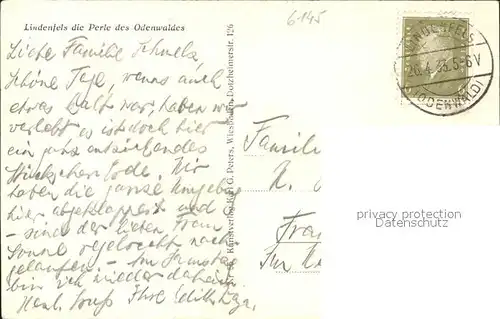 Lindenfels die Perle des Odenwaldes
6-145
Liebe Familie Schmelz,
schöne Tage, wenns auch
etwas kalt war, haben wir
verlebt es ist doch hier
ein ganz entzückendes
Stückchen Erde. Wir
haben die ganze Umgebung
hier abgeklappert und
- sind der lieben Frau
Sonne regelrecht nach-
gelaufen - Am Samstag
bin ich wieder daheim
Herzl. Gruß Ihre Edith
Kunstverlag Karl G. Peters, Wiesbaden, Dotzheimerstr. 126
LINDENFELS
26.4.33.5-6V
(ODENWALD)
Familie
K.
Fran
privacy protection
Datenschutz